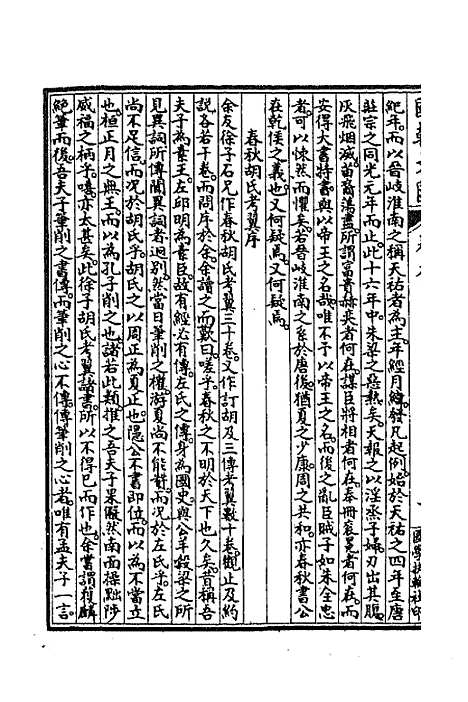 紀年。而以晉岐淮南之稱天祐者為主。年經月緯。發凡起例。始於天祐之四年至唐
莊宗之同光元年而止。此十六年中。朱梁之惡熟矣。天報之以淫烝子婦。刃出其腹。
灰飛烟滅。苗裔蕩盡。所謂富貴赫奕者何在。謀臣將相者何在。奉冊袞冕者何在。而
安得大書特書。與以帝王之名哉。唯不予以帝王之名。而後之亂臣賊子如朱全忠
者。可以悚然而懼矣。若晉岐淮南之系於唐後。猶夏之少康。周之共和。亦春秋書公
在乾侯之義也。又何疑焉。又何疑焉。
春秋胡氏考翼序
余友徐子石兄作春秋胡氏考翼三十卷。又作訂胡及三傳考翼數十卷。觀止及約
說各若干卷。而問序於余。余讀之而歎曰。嗟乎。春秋之不明於天下也久矣。昔稱吾
夫子為素王。左邱明為素臣。故有經必有傳。左氏之傳。身為國史。與公羊穀梁之所
見異詞所傳聞異詞者迥別。然當日筆削之權。游夏尚不能贊。而況於左氏乎。左氏
尚不足信。而況於胡氏乎。胡氏之以周正為夏正也。隱公不書即位。而以為不當立
也。桓正月之無王。而以為孔子削之也。諸若此類推之。吾夫子果儼然南面操黜陟
威福之柄乎。嘻。亦太甚矣。此徐子胡氏考翼諸書。所以不得已而作也。余嘗謂獲麟
絕筆而後。吾夫子筆削之書傳。而筆削之心不傳。傳筆削之心者。唯有孟夫子一言。
國學扶輪社印